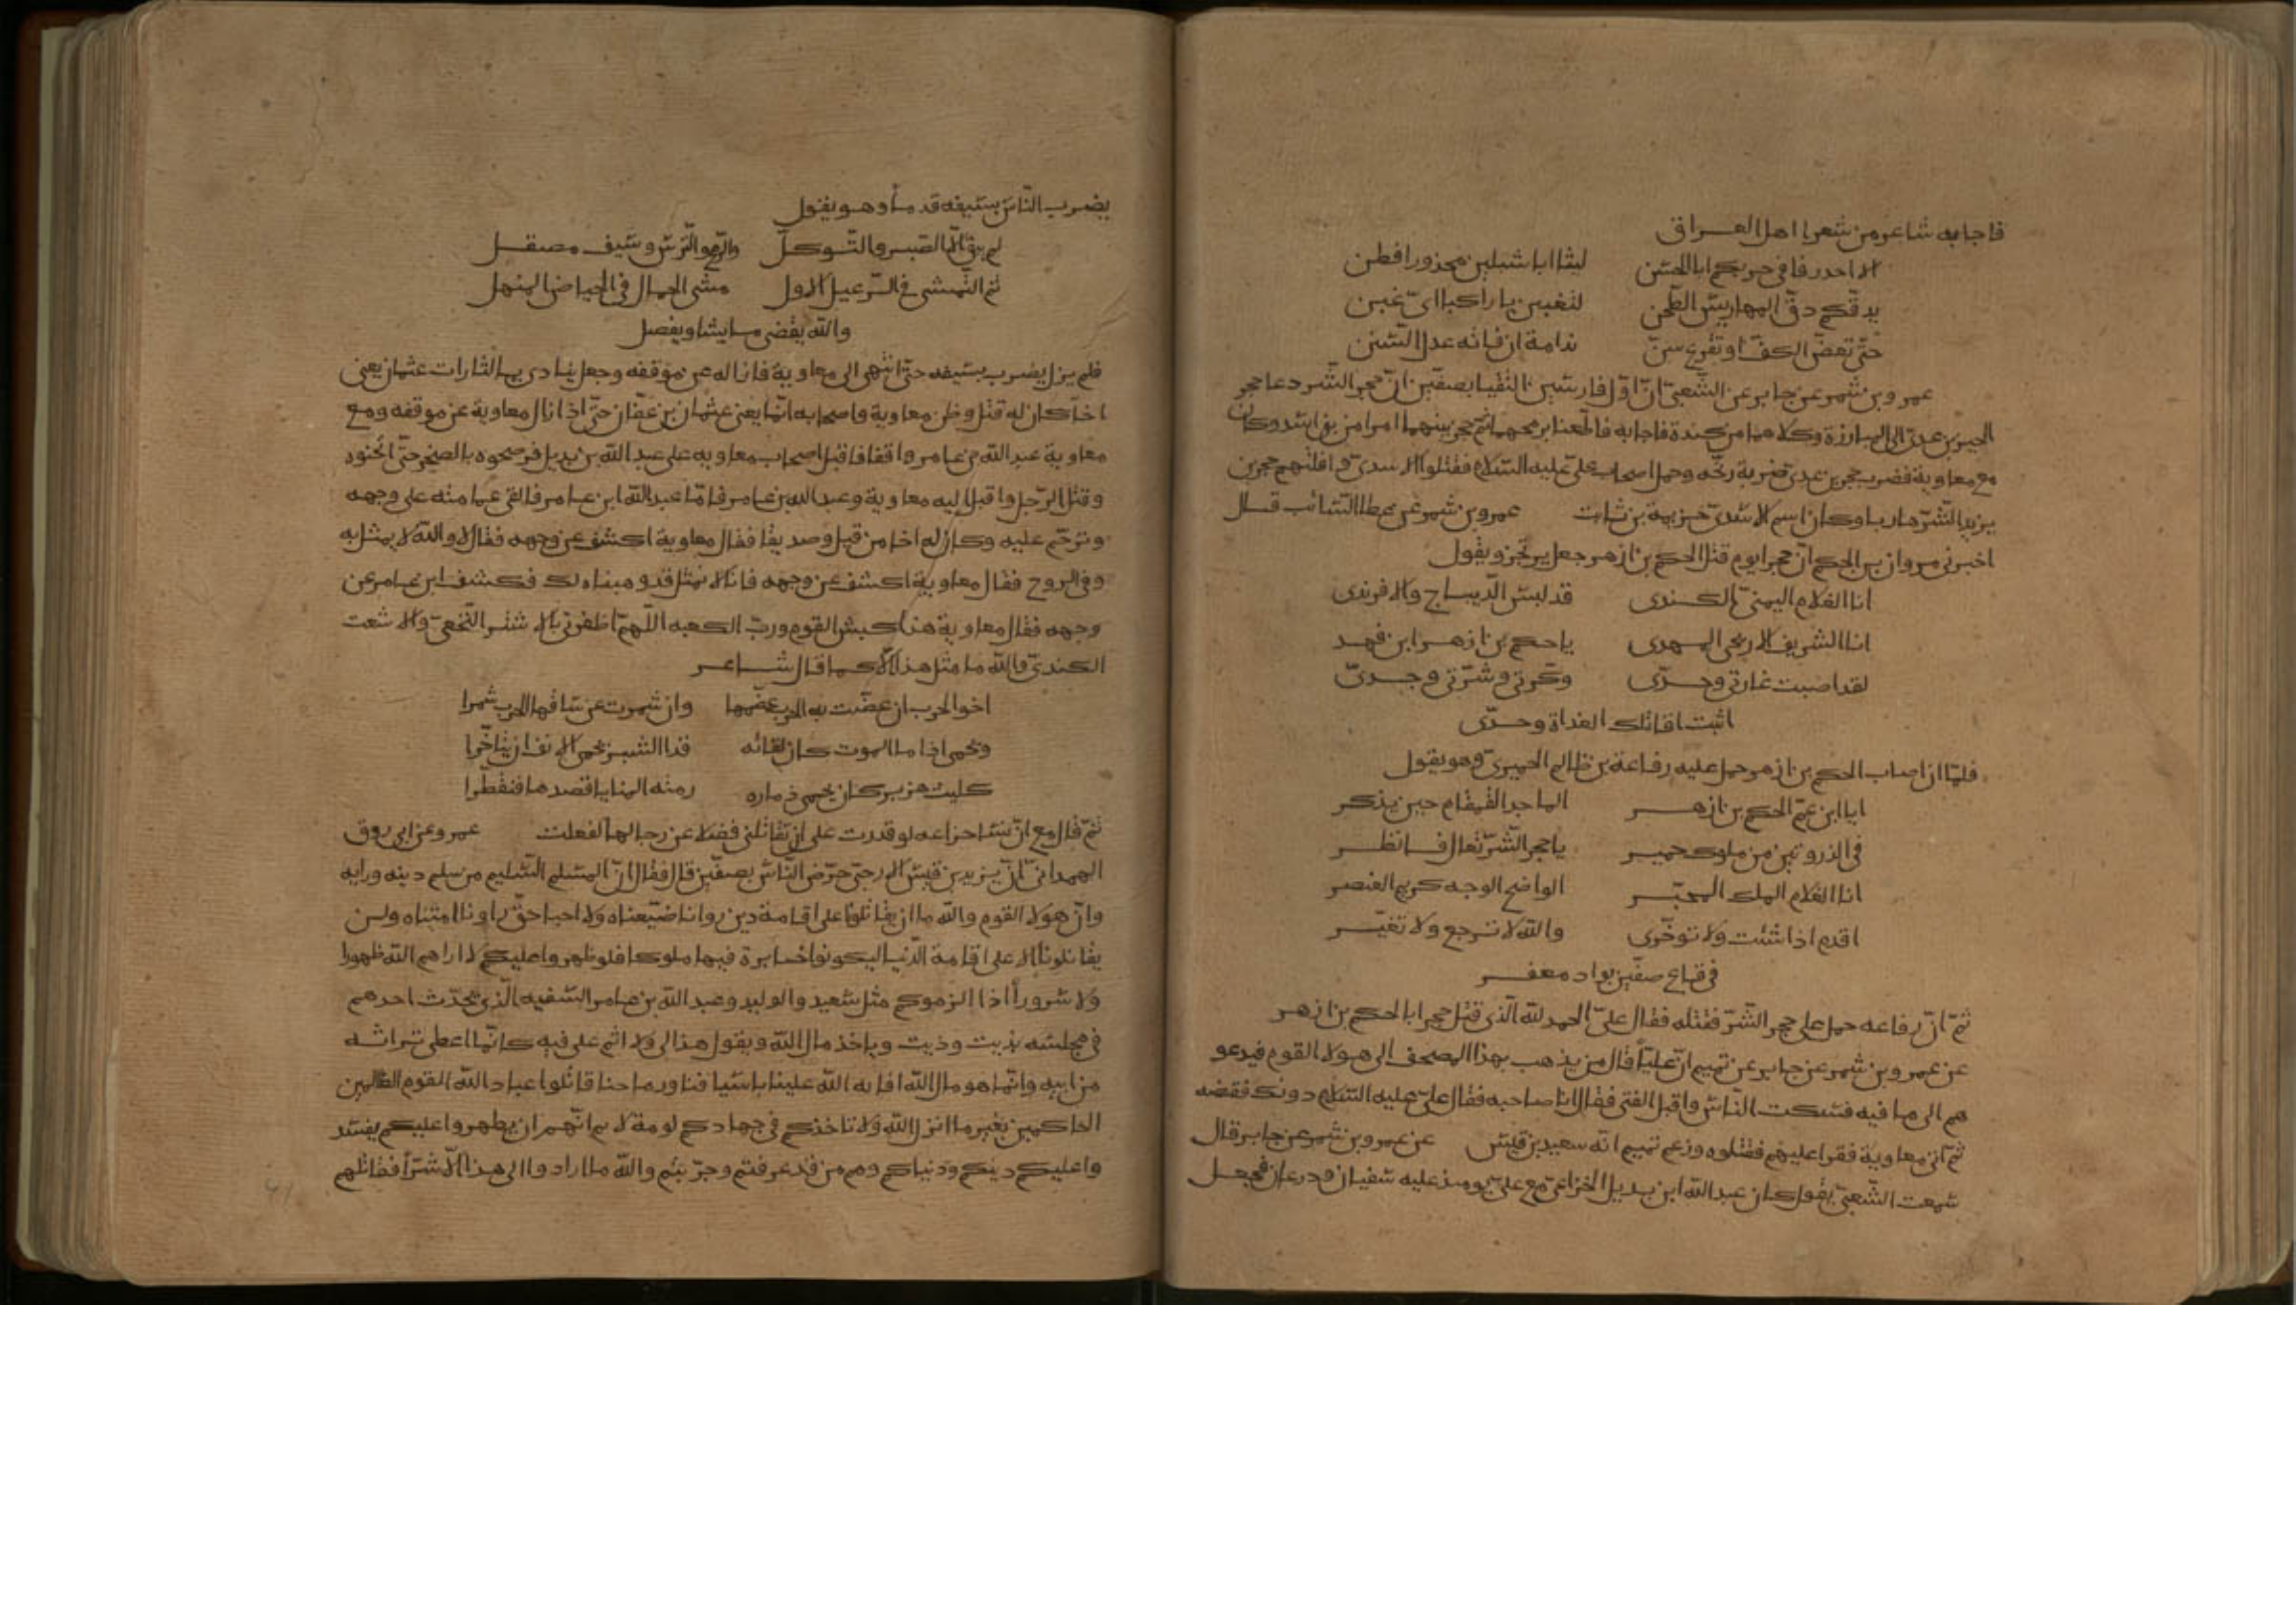 فاجابه شاعر من شعرا اهل العراق
الا احدروا في حربكم ابا الحسن ليثا ابا شبلين محذورا فطن
يدقكم دق المهاريس الطحن لتغبنن يا راكبا اي غبن
حتى تعض الكف او تقرع سن ندامة ان فاته عدل السنن
عمرو بن شمر عن جابر عن الشعبي ان اول فارسين التقيا بصفين ان حجر الشر دعا حجر
الخير بن عدي الى المبارزة وكلاهما من كندة فاجابه فاطعنا برمحهما ثم حجز بينهما امرا من بني اسد وكان
مع معاوية فضرب حجر بن عدي ضربة برمحه وحمل اصحاب علي عليه السلام فقتلوا الاسدي وافلتهم حجر بن
يزيد الشر هاربا وكان اسم الاسدي خزيمة بن ثابت عمرو بن شمر عن عطا السائب قال
اخبرني مروان بن الحكم ان حجرا يوم قتل الحكم بن ازهر جعل يرتجز ويقول
انا الغلام اليمني الكندي قد لبس الديباج والافرندي
انا الشريف الاريحي المهدي يا حكم بن ازهر ابن فهد
لقد اصبت غارتي وحدي وكرتي وشرتي وجدي
اثبت اقاتلك الغداة وحدي
فلما ان اصاب الحكم بن ازهر حمل عليه رفاعة بن ظالم الحميري وهو يقول
ايا ابن عم الحكم بن ازهر الماجد القمقام حين يذكر
في الذروتين من ملوك حمير يا حجر الشر تعال فانظر
انا الغلام الملك المحبر الواضح الوجه كريم العنصر
اقدم اذا شئت ولا توخرى والله لا ترجع ولا تغير
في قاع صفين بواد معفر
ثم ان رفاعه حمل على حجر الشر فقتله فقال علي الحمد لله الذي قتل حجرا بالحكم بن ازهر
عن عمرو بن شمر عن جابر عن تميم ان عليا قال من يذهب بهذا المصحف الى هولا القوم فيدعو
هم الى ما فيه فسكت الناس واقبل الفتى فقال انا صاحبه فقال علي عليه السلام دونك فقبضه
ثم اتى معاوية فقرا عليهم فقتلوه وزعم تميم انه سعيد بن قيس عن عمرو بن شمر عن جابر قال
سمعت الشعبي يقول كان عبد الله ابن بديل الخزاعي مع علي يومئذ عليه سفيان ودرعان فجعل
يضرب الناس بسيفه قدما وهو يقول
لم يبق الا الصبر والتوكل والرمح والترس وسيف مصقل
ثم التمشي في الرعيل الاول مشي الجمال في الحياض المنهل
والله يقضي ما يشا ويفصل
فلم يزل يضرب بسيفه حتى انتهى الى معاوية فازاله عن موقفه وجعل ينادي يا لثارات عثمان يعني
اخا كان له قتل وظن معاوية واصحابه انما يعني عثمان بن عفان حتى اذا ازال معاوية عن موقفه ومع
معاوية عبد الله بن عامر واقفا فاقبل اصحاب معاويه على عبد الله بن بديل فرضحوه بالصخر حتى اثخنوه
وقتل الرجل واقبل اليه معاوية وعبد الله بن عامر فاما عبد الله ابن عامر فالقى عمامته على وجهه
وترحم عليه وكان له اخا من قبل وصديقا فقال معاوية اكشف عن وجهه فقال لا والله لا يمثل به
وفي الروح فقال معاوية اكشف عن وجهه فانا لا نمثل قد وهبناه لك فكشف ابن عامر عن
وجهه فقال معاوية هذا كبش القوم ورب الكعبه اللهم اظفرني بالاشتر النخعي والاشعث
الكندي والله ما مثل هذا الا كما قال شاعر
اخو الحرب ان عضت به الحرب عضها وان شمرت عن ساقها الحرب شمرا
ويحمي اذا ما الموت كان لقائه قدا الشبر يحمي الانف ان يتاخرا
كليث هزبر كان يحمي ذماره رمته المنايا قصدها فتقطرا
ثم قال مع ان نسا خزاعه لو قدرت على ان تقاتلني فضلا عن رجالها لفعلت عمرو عن ابي روق
الهمداني ان يزيد بن قيس الارحبي حرض الناس بصفين قال فقال ان المسلم السليم من سلم دينه ورايه
وان هولا القوم والله ما ان يقاتلونا على اقامة دين راونا ضيعناه ولا احيا حق راونا امتناه ولن
يقاتلونا الا على اقامة الدنيا ليكونوا جبابرة فيها ملوكا فلو ظهروا عليكم لا اراهم الله ظهورا
ولا سرورا اذا الزموكم مثل سعيد والوليد وعبد الله بن عامر السفيه الذي يحدث احدهم
في مجلسه بذيت وذيت وياخذ مال الله ويقول هذا لي ولا اثم علي فيه كانما اعطي تراثه
من ابيه وانما هو مال الله افا به الله علينا باسيافنا ورماحنا قاتلوا عباد الله القوم الظالمين
الحاكمين بغير ما انزل الله ولا تاخذكم في جهادهم لومة لايم انهم ان يظهروا عليكم يفسد
واعليكم دينكم ودنياكم وهم من قد عرفتم وجربتم والله ما ارادوا الى هذا الا شرا فقاتلهم